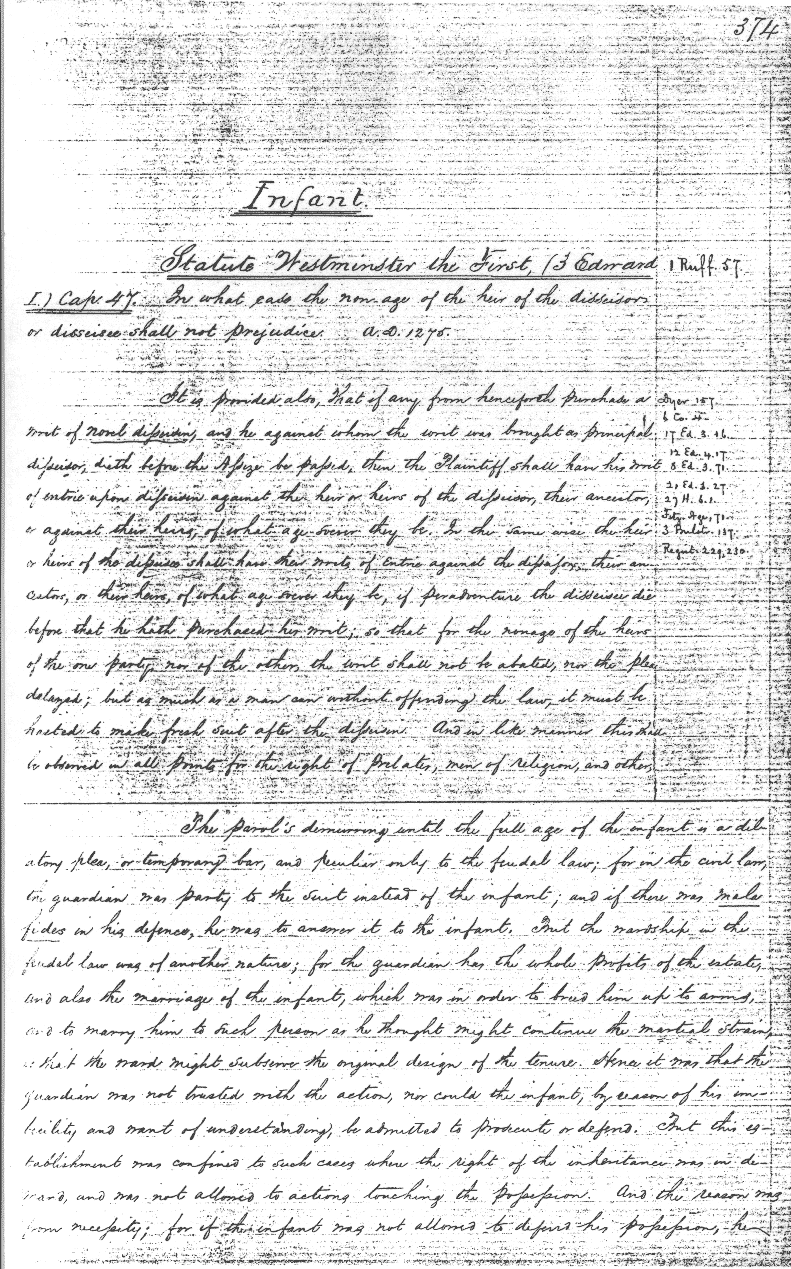 374
Infant.
Statute Westminster the First, (3 Edward
1 Ruff. 57.
I.) Cap. 47. In what case the non-age of the heir of the disseisors
or disseisee shall not prejudice. A.D. 1275.
It is provided also, That if any from henceforth purchase a
Dyer 137.
6 Co. 4.
writ of novel disseisin, and he against whom the writ was brought as principal
17 Ed. 3. 16.
12 Ed. 4. 17.
disseisor, dieth before the Assize be passed, then the Plaintiff shall have his writ
8 Ed. 3. 71.
of entrie upon disseisin against the heir or heirs of the disseisor, their ancestor,
21 Ed. 3. 27.
27 H. 6. 1.
or against their heirs, of what age soever they be. In the same wise the heir
Age, 71.
3 137.
or heirs of the disseisee shall have their writs of Entrie against the disseisors, their an-
Regist. 229, 230.
cestors, or their heirs, of what age soever they be, if peradventure the disseisee die
before that he hath purchased his writ; so that for the nonage of the heirs
of the one party, nor of the other, the writ shall not be abated, nor the plea
delayed; but as much as a man can without offending the law, it must be
hasted to make fresh suit after the disseisin. And in like manner this shall
be observed in all points for the right of Prelates, men of religion, and other,
The parol's demurring until the full age of the infant is a dil-
atory plea, or temporary bar, and peculiar only to the feudal law; for in the civil law,
the guardian was party to the suit instead of the infant; and if there was mala
fides in his defence, he was to answer it to the infant. But the wardship in the
feudal law was of another nature; for the guardian has the whole profits of the estate,
and also the marriage of the infant, which was in order to breed him up to arms,
and to marry him to such person as he thought might continue the martial strain,
that the ward might subserve the original design of the tenure. Hence it was that the
guardian was not trusted with the action, nor could the infant, by reason of his im-
becility and want of understanding, be admitted to prosecute or defend. But this es-
tablishment was confined to such cases where the right of the inheritance was in de-
mand, and was not allowed to actions touching the possession. And the reason was
from necessity; for if the infant was not allowed to defend his possession, he